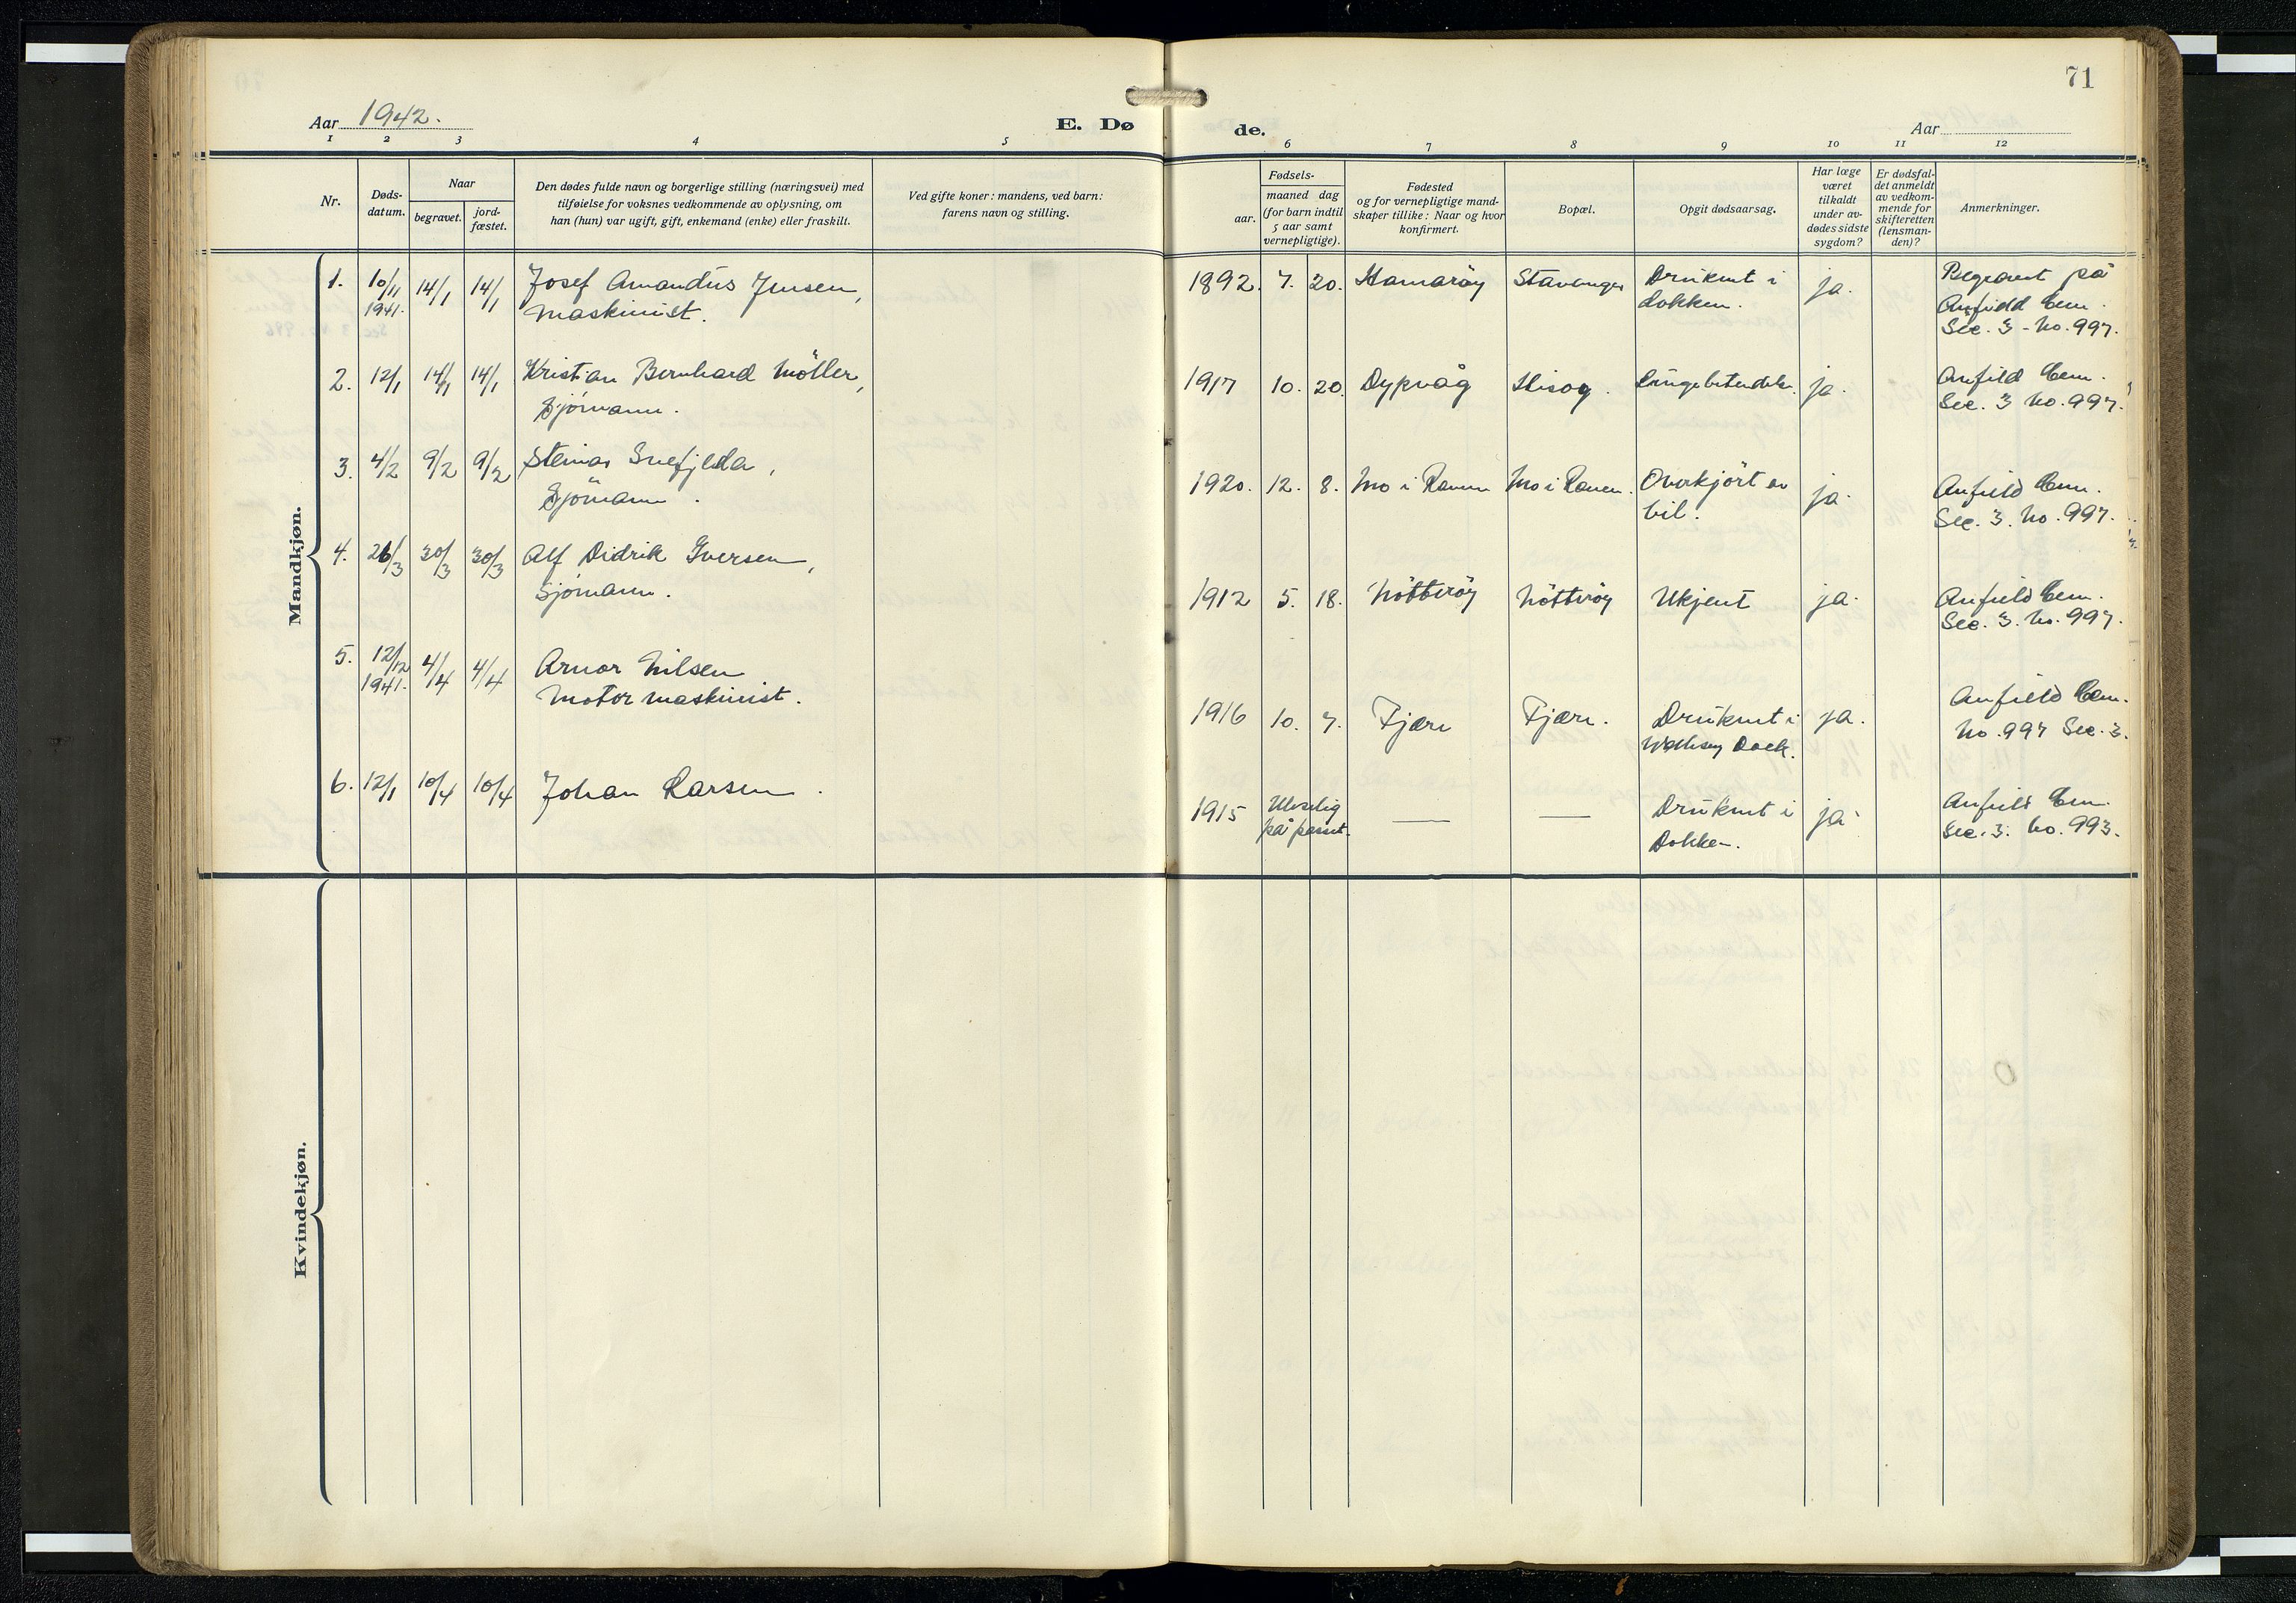 71
Aar 1942.
E. Dø
de.
Aar
1 2 3 4 5 6 7 8 9 10 11 12
Nr.
Døds-
datum.
Naar
begravet.
jord-
fæstet.
Den dødes fulde navn og borgerlige stilling (næringsvei) med
tilføielse for voksnes vedkommende av oplysning, om
han (hun) var ugift, gift, enkemand (enke) eller fraskilt.
Ved gifte koner: mandens, ved barn:
farens navn og stilling.
Fødsels-
aar.
maaned dag
(for barn indtil
5 aar samt
vernepligtige).
Fødested
og for vernepligtige mand-
skaper tillike: Naar og hvor
konfirmert.
Bopæl.
Opgit dødsaarsag.
Har læge
været
tilkaldt
under av-
dødes sidste
sygdom?
Er dødsfal-
det anmeldt
av vedkom-
mende for
skifteretten
(lensman-
den)?
Anmerkninger.
Mandkjøn.
1. 10/11 14/1 14/1 Josef Amandus Jensen, 1892. 7. 20. Hamaröy Stavanger Druknet i ja. Begravet på
1941. Maskinist. Dokken. Anfield Cem.
Sec. 3 - No. 997.
2. 12/1 14/1 14/1 Kristian Bernhard Möller, 1917 10. 20. Dypvåg Hisøy. ja. Anfield Cem.
Sjömann. Sec. 3 No. 997.
3. 4/2 9/2 9/2 Steinar Snefjella, 1920. 12. 8. Mo i Ranen Mo i Ranen. Overkjört av ja. Anfield Cem.
Sjömann. bil. Sec. 3. No. 997.
4. 26/3 30/3 30/3 Alf Didrik Iversen, 1912 5. 18. Nötteröy Nötteröy Ukjent ja. Anfield Cem.
Sjömann. Sec. 3. No. 997.
5. 12/12 4/4 4/4 Arnor Nilsen 1916 10. 7. Fjære Fjære. Druknet i ja. Anfield Cem.
1941. Motormaskinist. Dock. No. 997 Sec. 3.
6. 12/1 10/4 10/4 Johan Larsen. 1915 Uleselig — — Druknet i ja. Anfield Cem.
på passet. Dokken. Sec. 3. No. 993.
Kvindekjøn.